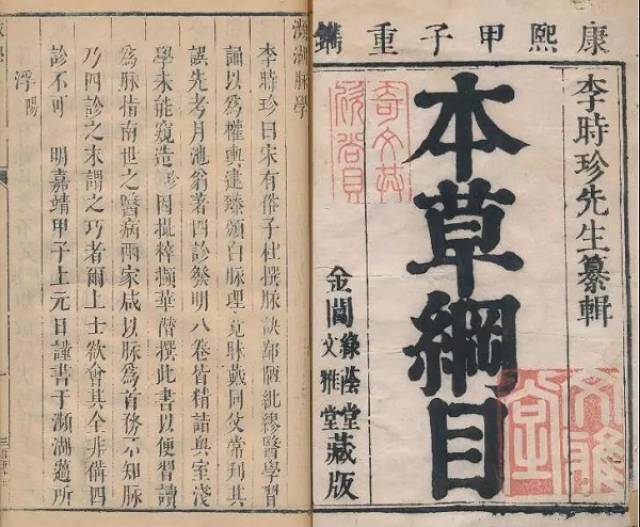 康熙甲子重鐫
李時珍先生纂輯
本草綱目
奇文共
欣賞
文雅
堂
金閶
綠蔭堂
文雅堂
藏版
瀕湖脈學
李時珍曰宋有俗子杜撰脉訣鄙陋紕繆醫學習
誦以爲權輿逮臻頒白脉理竟昧戴同父常刋其
誤先考月池翁著四診發明八卷皆精詣奥室淺
學未能窺造珍因撮粹擷華僭撰此書以便習讀
爲脉指南世之醫病兩家咸以脉爲首務不知脉
乃四診之末謂之巧者爾上士欲會其全非備四
診不可 明嘉靖甲子上元日謹書于瀕湖薖所
浮陽